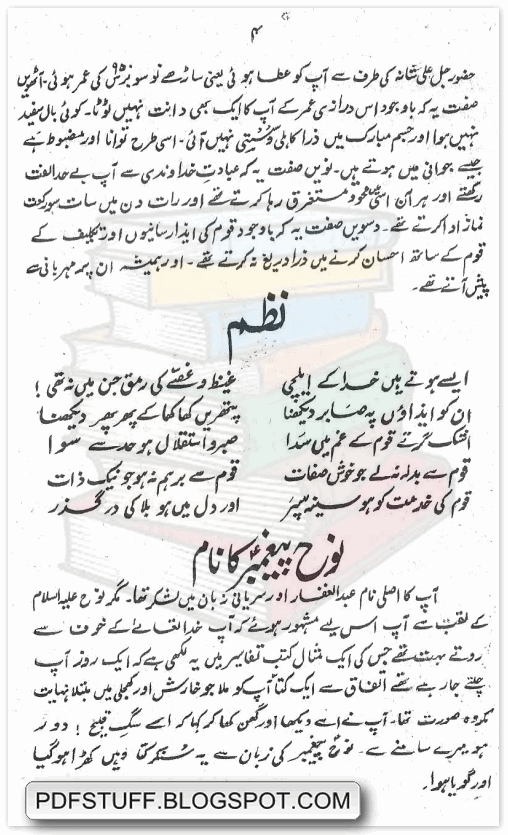 ۴
حضور جل علی شانہ کی طرف سے آپ کو عطا ہوئی یعنی ساڑھے نو سو برس ۹۵۰ کی عمر ہوئی۔ آٹھویں
صفت یہ کہ باوجود اس درازی عمر کے آپ کا ایک بھی دانت نہیں ٹوٹا۔ کوئی بال سفید
نہیں ہوا اور جسم مبارک میں ذرا کاہلی و سستی نہیں آئی۔ اسی طرح توانا اور مضبوط تھے
جیسے جوانی میں ہوتے ہیں۔ نویں صفت یہ کہ عبادتِ خداوندی سے آپ بے حد الفت
رکھتے اور ہر آن اسی میں محو و مستغرق رہا کرتے تھے اور رات دن میں سات سو رکعت
نماز ادا کرتے تھے۔ دسویں صفت یہ کہ باوجود قوم کی ایذا رسانیوں اور تکلیف کے
قوم کے ساتھ احسان کرنے میں ذرا دریغ نہ کرتے تھے۔ اور ہمیشہ ان پہ مہربانی سے
پیش آتے تھے۔
نظم
ایسے ہوتے ہیں خدا کے ایلچی غیظ و غصے کی رمق جن میں نہ تھی!
ان کو ایذاؤں پہ صابر دیکھنا پتھریں کھا کھا کے پھر پھر دیکھنا
اشک کرتے قوم کے غم میں سدا صبر و استقلال ہو حد سے سوا
قوم سے بدلہ نہ لے جو خوش صفات قوم سے برہم نہ ہو جو نیک ذات
قوم کی خدمت کو ہو سینہ سپر اور دل میں ہو بلا کی درگذر
نوح پیغمبر کا نام
آپ کا اصلی نام عبدالغفار اور سریانی زبان میں لشکر تھا۔ مگر نوح علیہ السلام
کے لقب سے آپ اس لیے مشہور ہوئے کہ آپ خدا تعالیٰ کے خوف سے
روتے بہت تھے جس کی ایک مثال کتب تفاسیر میں یہ لکھی ہے کہ ایک روز آپ
چلے جا رہے تھے اتفاق سے ایک کتا آپ کو ملا جو خارش اور کھجلی میں مبتلا نہایت
مکروہ صورت تھا۔ آپ نے اسے دیکھا اور گھن کھا کر کہا کہ اے سگِ قبیح! دور
ہو میرے سامنے سے۔ نوح پیغمبر کی زبان سے یہ سنکر کتا وہیں کھڑا ہو گیا
اور گویا ہوا۔
PDFSTUFF.BLOGSPOT.COM